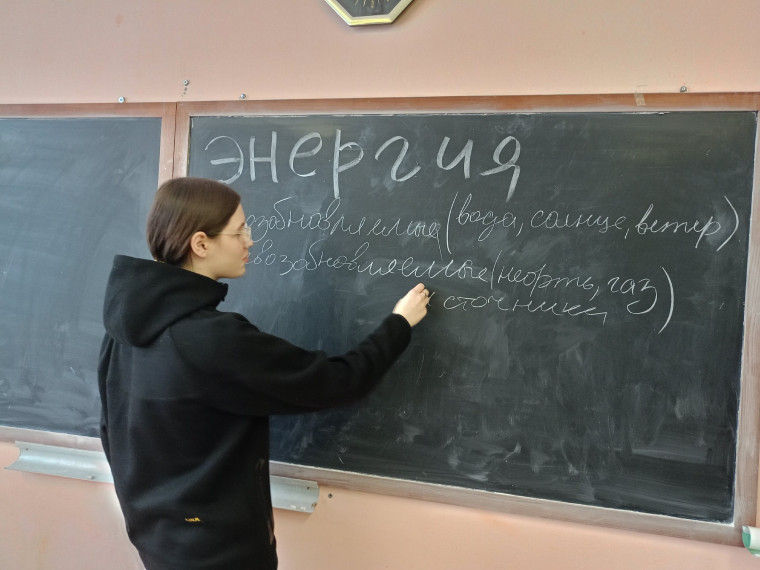 энергия
возобновляемые (вода, солнце, ветер)
невозобновляемые (нефть, газ)
источники